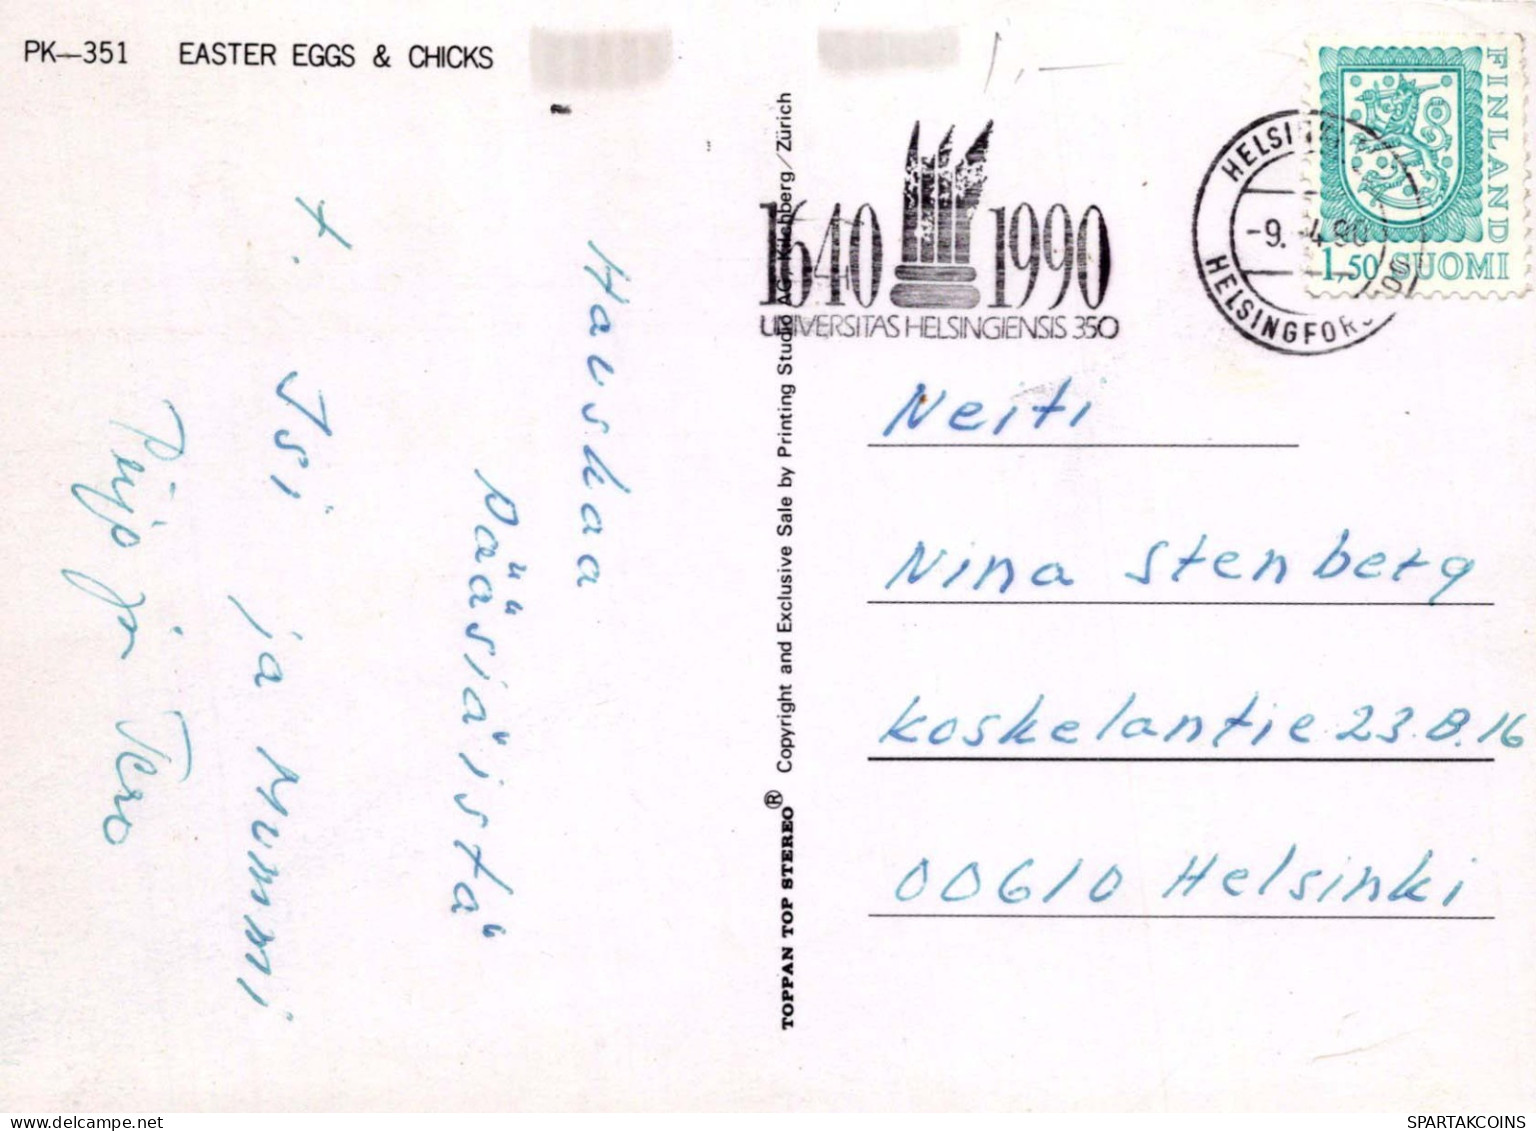 PK—351 EASTER EGGS & CHICKS
Hauskaa
Pääsiäistä
t. Isi
ja Mummi
Pirjo ja Tero
Copyright and Exclusive Sale by Printing Studio AG, Kilchberg/Zürich
TOPPAN TOP STEREO®
1640 1990
UNIVERSITAS HELSINGIENSIS 350
HELSINKI
-9.-4.90
HELSINGFORS
FINLAND
1,50 SUOMI
Neiti
Nina Stenberg
Koskelantie 23.B.16
00610 Helsinki
SPARTAKCOINS